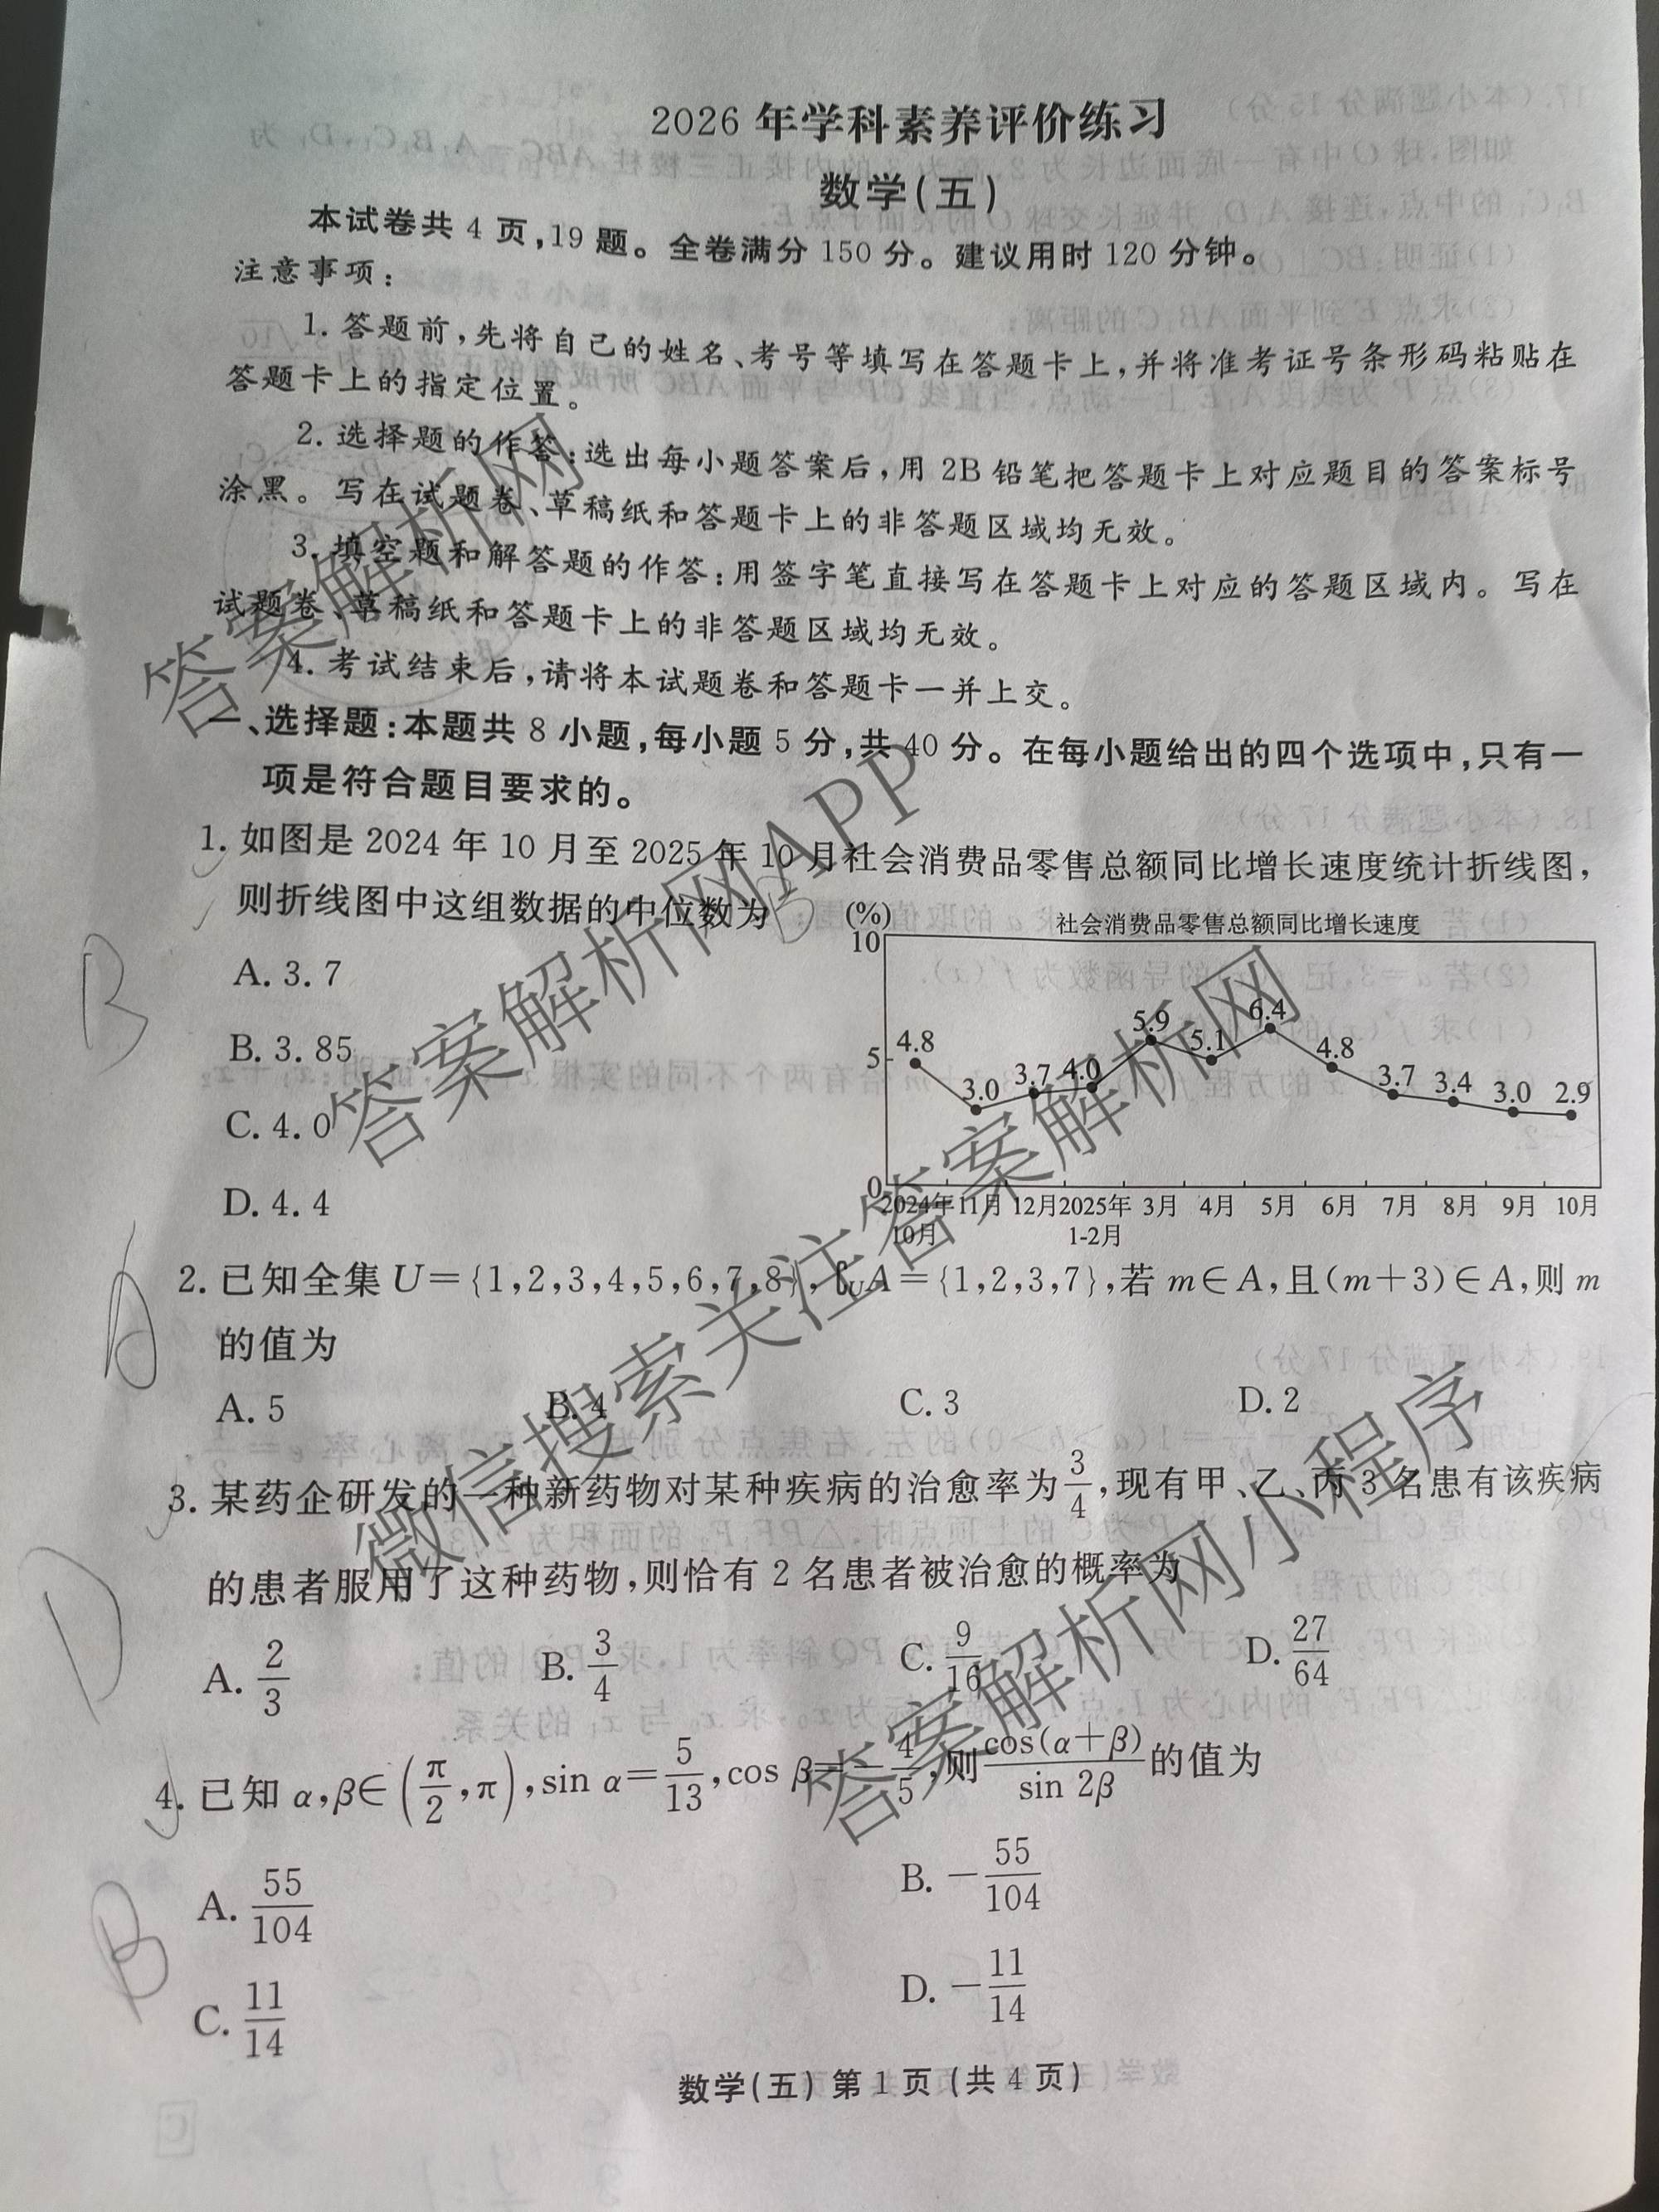 2026年学科素养评价练习
数学(五)
本试卷共4页,19题。全卷满分150分。建议用时120分钟。
注意事项:
1. 答题前,先将自己的姓名、考号等填写在答题卡上,并将准考证号条形码粘贴在
答题卡上的指定位置。
2. 选择题的作答:选出每小题答案后,用2B铅笔把答题卡上对应题目的答案标号
涂黑。写在试题卷、草稿纸和答题卡上的非答题区域均无效。
3. 填空题和解答题的作答:用签字笔直接写在答题卡上对应的答题区域内。写在
试题卷、草稿纸和答题卡上的非答题区域均无效。
4. 考试结束后,请将本试题卷和答题卡一并上交。
一、选择题:本题共8小题,每小题5分,共40分。在每小题给出的四个选项中,只有一
项是符合题目要求的。
1. 如图是2024年10月至2025年10月社会消费品零售总额同比增长速度统计折线图,
则折线图中这组数据的中位数为 B
(%) 社会消费品零售总额同比增长速度
10
5
0
4.8 3.0 3.7 4.0 5.9 5.1 6.4 4.8 3.7 3.4 3.0 2.9
2024年 11月 12月 2025年 3月 4月 5月 6月 7月 8月 9月 10月
10月 1-2月
B
A. 3.7
B. 3.85
C. 4.0
D. 4.4
A
2. 已知全集U={1,2,3,4,5,6,7,8},∁UA={1,2,3,7},若m∈A,且(m+3)∈A,则m
的值为
A. 5 B. 4 C. 3 D. 2
D
3. 某药企研发的一种新药物对某种疾病的治愈率为3/4,现有甲、乙、丙3名患有该疾病
的患者服用了这种药物,则恰有2名患者被治愈的概率为
A. 2/3 B. 3/4 C. 9/16 D. 27/64
4. 已知α,β∈(π/2,π),sin α=5/13,cos β=-4/5,则cos(α+β)/sin 2β的值为
B
A. 55/104 B. -55/104
C. 11/14 D. -11/14
数学(五) 第1页 (共4页)
答案解析网
答案解析网APP
微信搜索关注答案解析网
答案解析网小程序